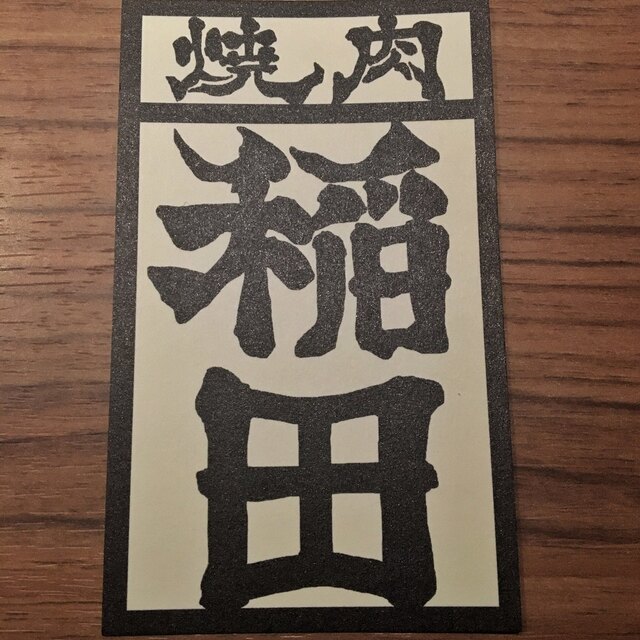 焼肉
稲田